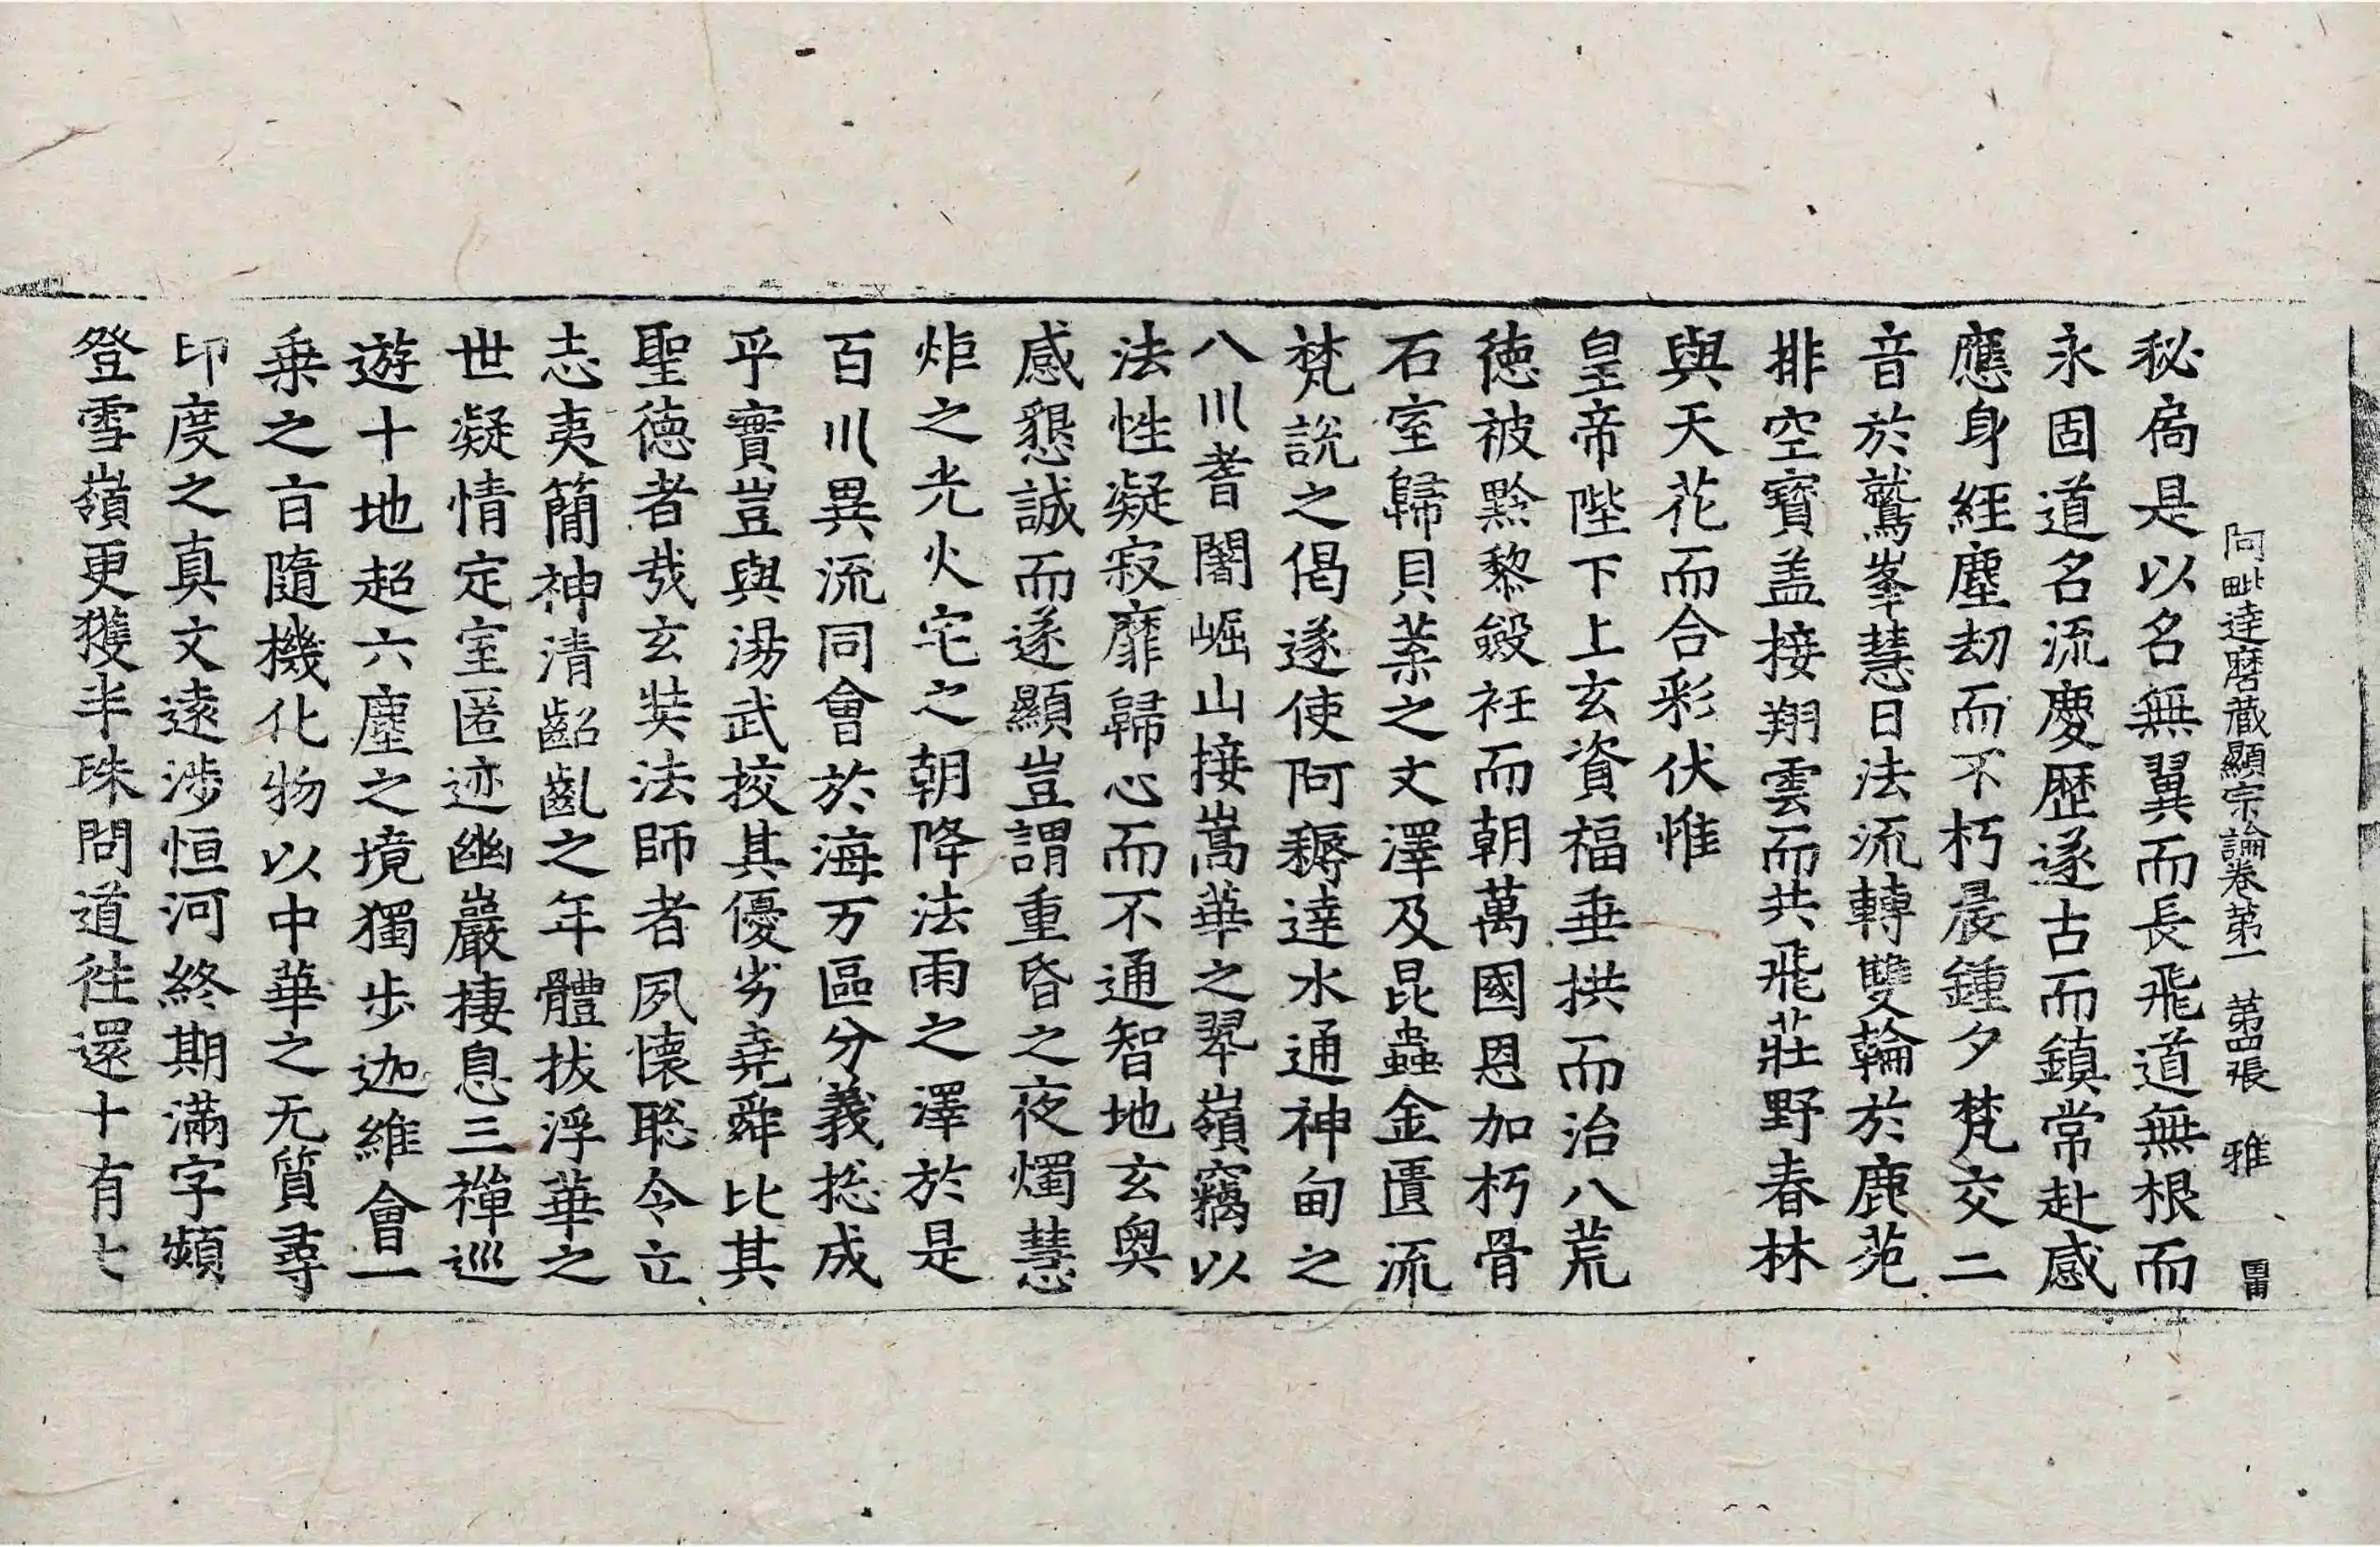 阿毗達磨藏顯宗論卷苐一 苐四張 雅
秘扃是以名無翼而長飛道無根而
永固道名流慶歷遂古而鎮常赴感
應身經塵劫而不朽晨鍾夕梵交二
音於鷲峯慧日法流轉雙輪於鹿苑
排空寶盖接翔雲而共飛莊野春林
與天花而合彩伏惟
皇帝陛下上玄資福垂拱而治八荒
德被黔黎斂衽而朝萬國恩加朽骨
石室歸貝葉之文澤及昆蟲金匱流
梵說之偈遂使阿耨達水通神甸之
八川耆闍崛山接嵩華之翠嶺竊以
法性凝寂靡歸心而不通智地玄奧
感懇誠而遂顯豈謂重昏之夜燭慧
炬之光火宅之朝降法雨之澤於是
百川異流同會於海万區分義捴成
乎實豈與湯武挍其優劣堯舜比其
聖德者㢤玄奘法師者夙懷聡令立
志夷簡神清齠齔之年體拔浮華之
世凝情定室匿迹幽巖棲息三禪巡
遊十地超六塵之境獨步迦維會一
乗之㫖隨機化物以中華之无質尋
印度之真文遠涉恒河終期滿字頻
登雪嶺更獲半珠問道往還十有七